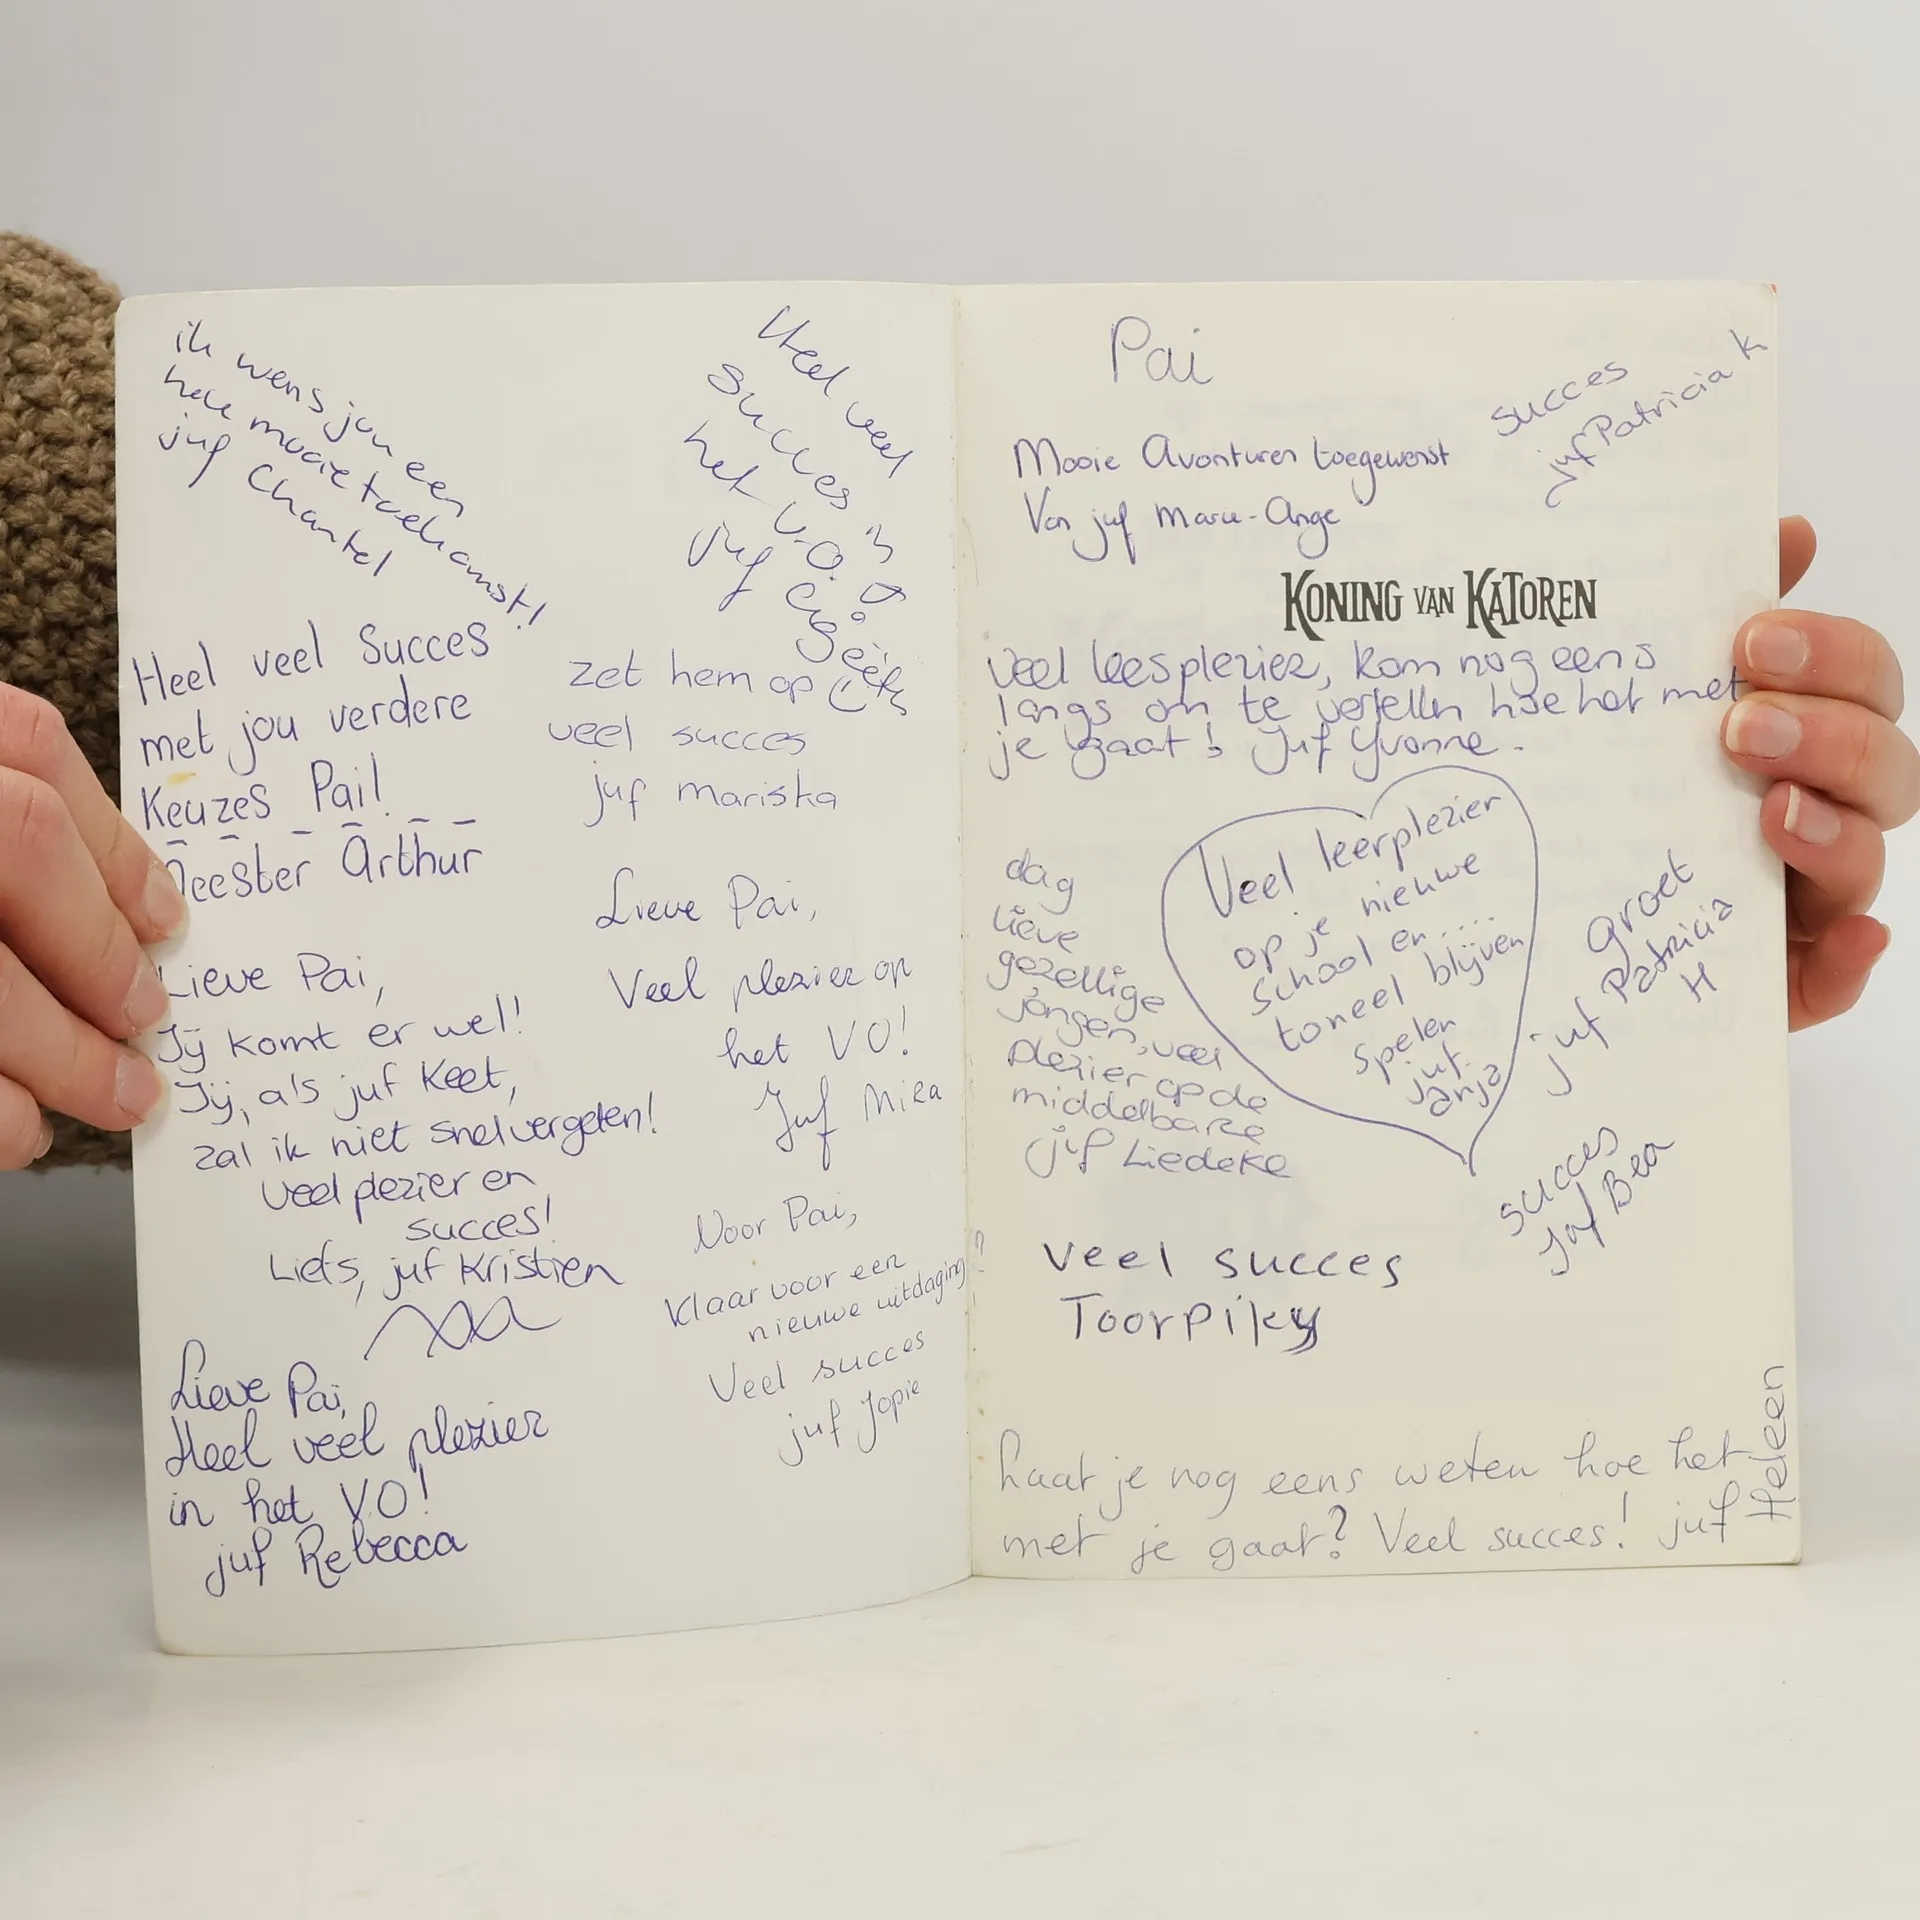 ik wens jou een
hele mooie toekomst!
juf Chantel
Heel veel
succes in
het V.O.!
juf
Heel veel Succes
met jou verdere
Keuzes Pai!
Meester Arthur
zet hem op
veel succes
juf mariska
Lieve Pai,
Jij komt er wel!
Jij, als juf Keet,
zal ik niet snel vergeten!
veel plezier en
succes!
Liefs, juf Kristien
Lieve Pai,
Veel plezier op
het VO!
Juf Mira
Voor Pai,
Klaar voor een
nieuwe uitdaging?
Veel succes
juf Jopie
Lieve Pai,
Heel veel plezier
in het VO!
juf Rebecca
Pai
succes
Juf Patricia K
Mooie Avonturen toegewenst
Van juf Marie-Ange
KONING VAN KATOREN
Veel leesplezier, kom nog eens
langs om te vertellen hoe het met
je gaat! Juf Yvonne.
Veel leerplezier
op je nieuwe
school en ....
toneel blijven
spelen
juf.
anja
dag
lieve
gezellige
jongen, veel
plezier op de
middelbare
juf Liedeke
groet
juf Patricia
H
succes
Juf Bea
Veel succes
Toorpiky
Laat je nog eens weten hoe het
met je gaat? Veel succes! juf Heleen